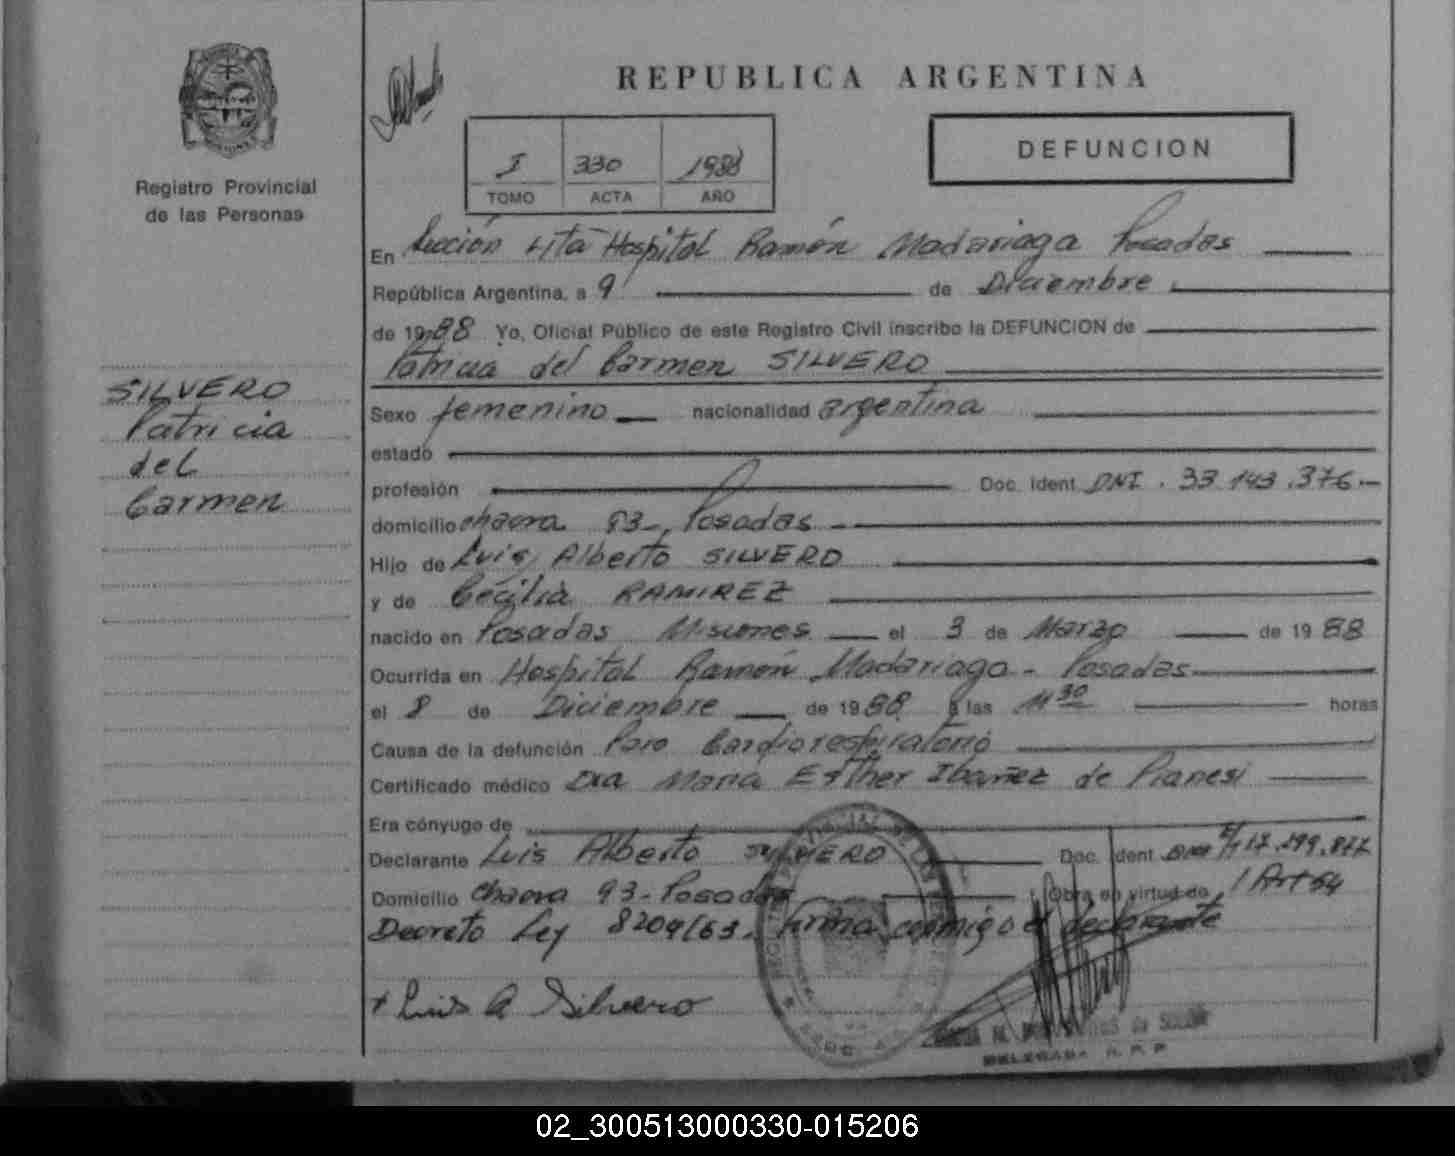 REPUBLICA ARGENTINA
Registro Provincial
de las Personas
I 330 1988
TOMO ACTA AÑO
DEFUNCION
SILVERO
Patricia
del
Carmen
En Sección 4ta Hospital Ramón Madariaga Posadas
República Argentina, a 9 de Diciembre
de 1988 Yo, Oficial Público de este Registro Civil inscribo la DEFUNCION de
Patricia del Carmen SILVERO
Sexo femenino nacionalidad argentina
estado
profesión Doc. Ident. DNI. 33.143.376.-
domicilio chacra 93-, Posadas -
Hijo de Luis Alberto SILVERO
y de Cecilia RAMIREZ
nacido en Posadas Misiones el 3 de Marzo de 1988
Ocurrida en Hospital Ramón Madariaga - Posadas
el 8 de Diciembre de 1988 a las 11 30 horas
Causa de la defunción Paro Cardiorespiratorio
Certificado médico Dra Maria Esther Ibañez de Pianesi
Era cónyuge de
Declarante Luis Alberto SILVERO Doc. Ident. 17.299.877
Domicilio Chacra 93-Posadas Obra en virtud de Art 54
Decreto Ley 8204/63. firma conmigo el declarante
+ Luis A Silvero
DELEGADA R. P. P.
02_300513000330-015206